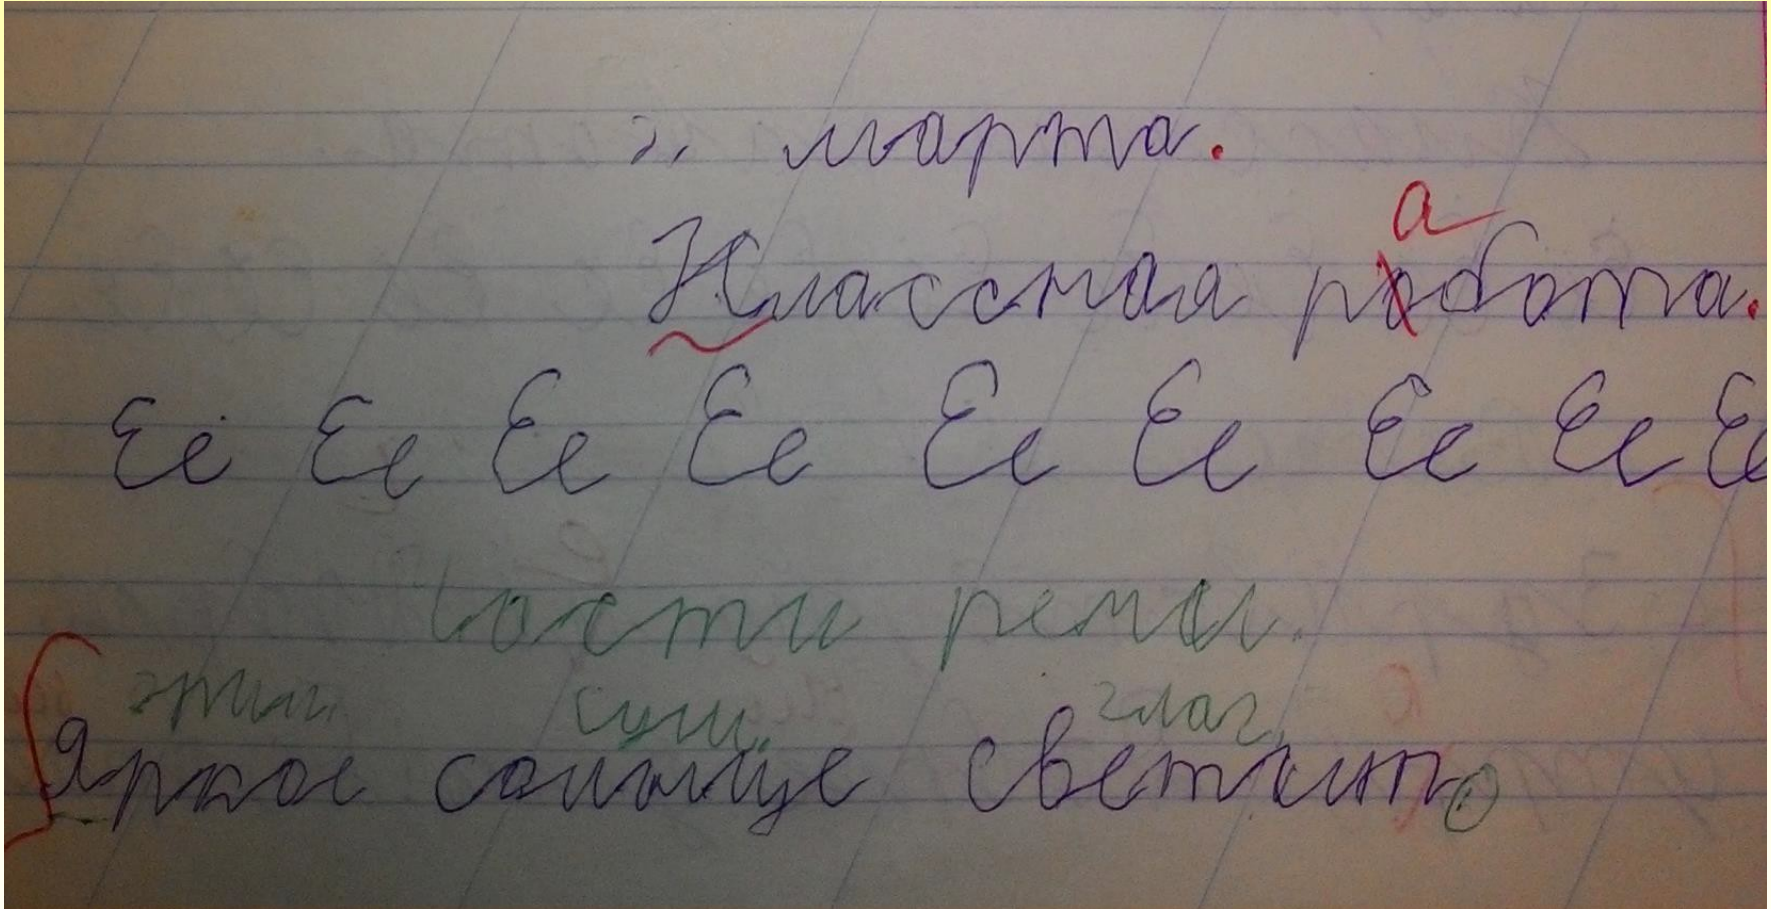 марта.
а
Классная робота.
Ее Ее Ее Ее Ее Ее Ее Ее Ее
Части речи.
прил. сущ. глаг.
Яркое солнце светит.